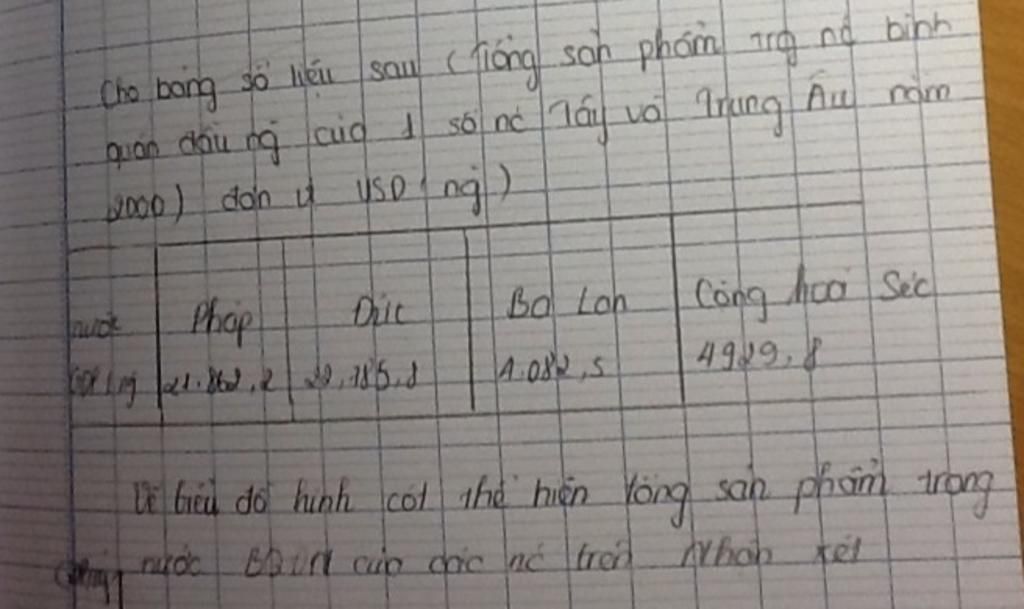 Cho bảng số liệu sau (Tổng sản phẩm trg nc bình
quân đầu ng của 1 số nc Tây và Trung Âu năm
2000) đơn vị USD/ng)
nước Pháp Đức Ba Lan Cộng hoà Séc
21.862,2 1.082,5 4929,8
Vẽ biểu đồ hình cột thể hiện tổng sản phẩm trong
nước BQĐN của các nc trên Nhận xét